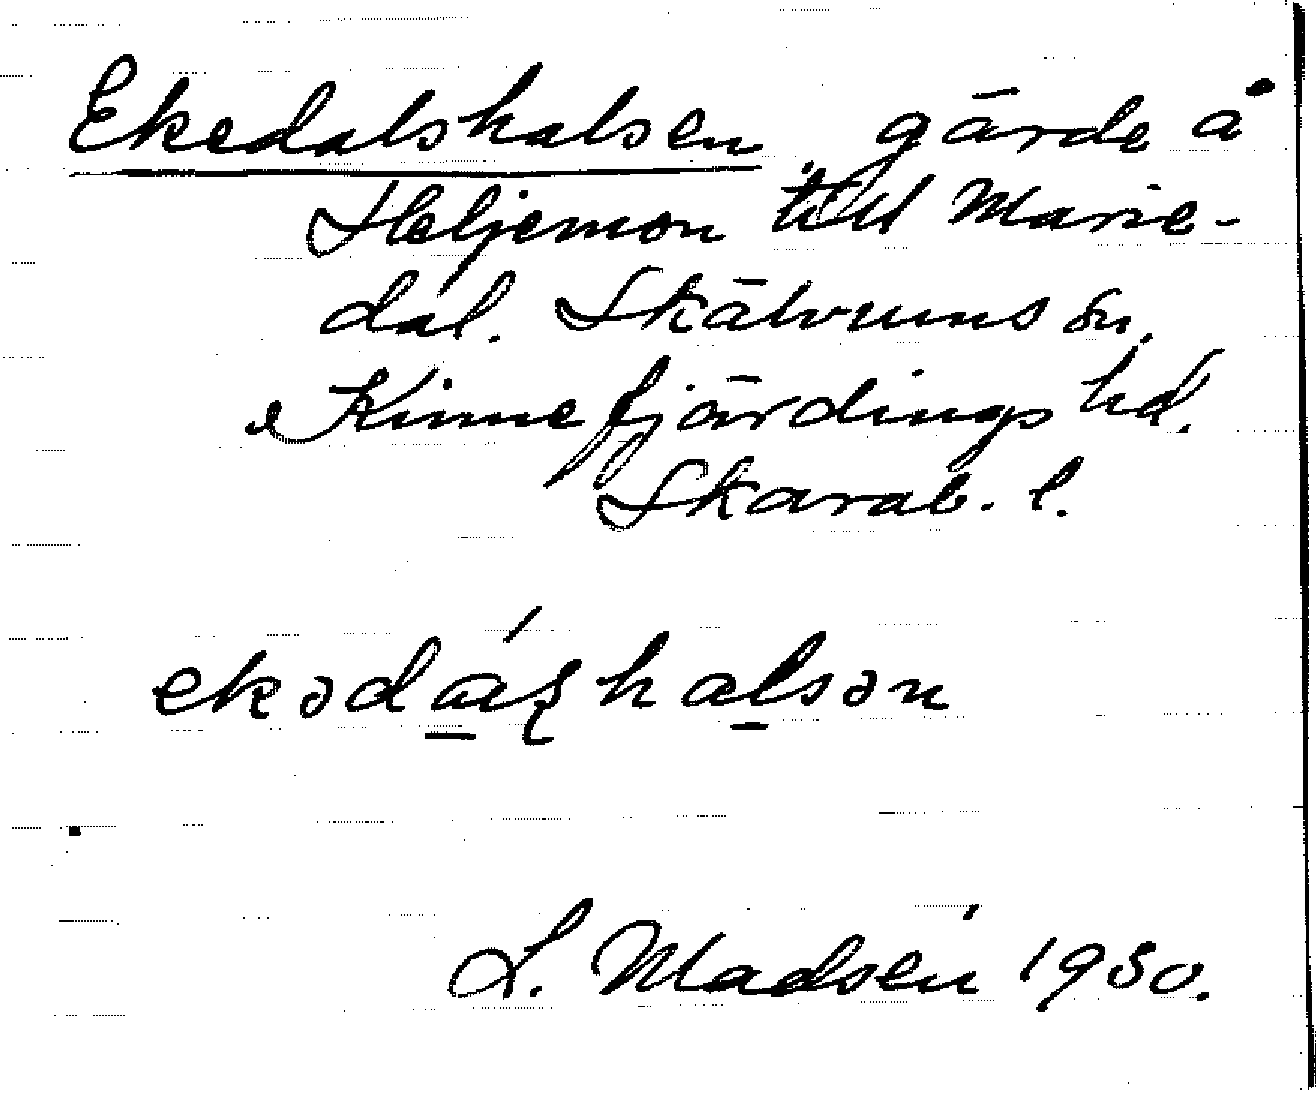 Ekedalshalsen, gärde å
Heljemon till Marie-
dal. Skälvums sn,
Kinnefjärdings hd.
Skarab. l.
ekədáʂhalsən
L. Madsén 1930.